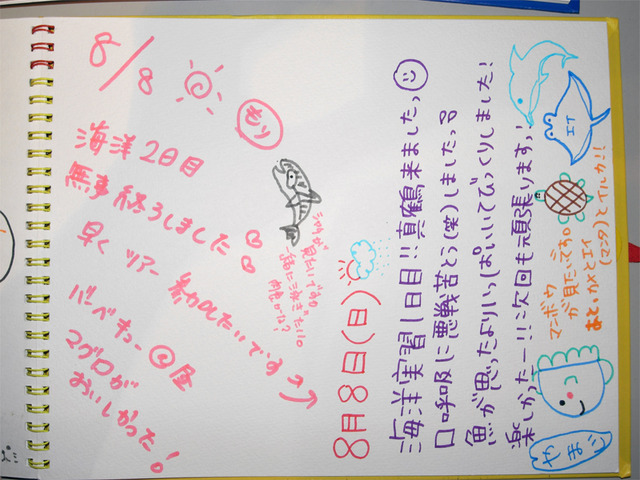 8/8
海洋2日目
無事終ろしました♡
早く ツアー 参加したいです
バーベキュー@昼
マグロが
おいしかった!
シャチが
見たいです
一緒に泳ぎたい。
8月8日(日)
海洋実習1日目!!真鶴来ましたっ
口呼吸に悪戦苦とう(笑)しましたっ。
魚が思ったよりいっぱいいてびっくりしました!
楽しかったー!!次回も頑張りますっ!
エイ
マンボウ
が見たいです。
エイ
(マンタ)とイルカ!!